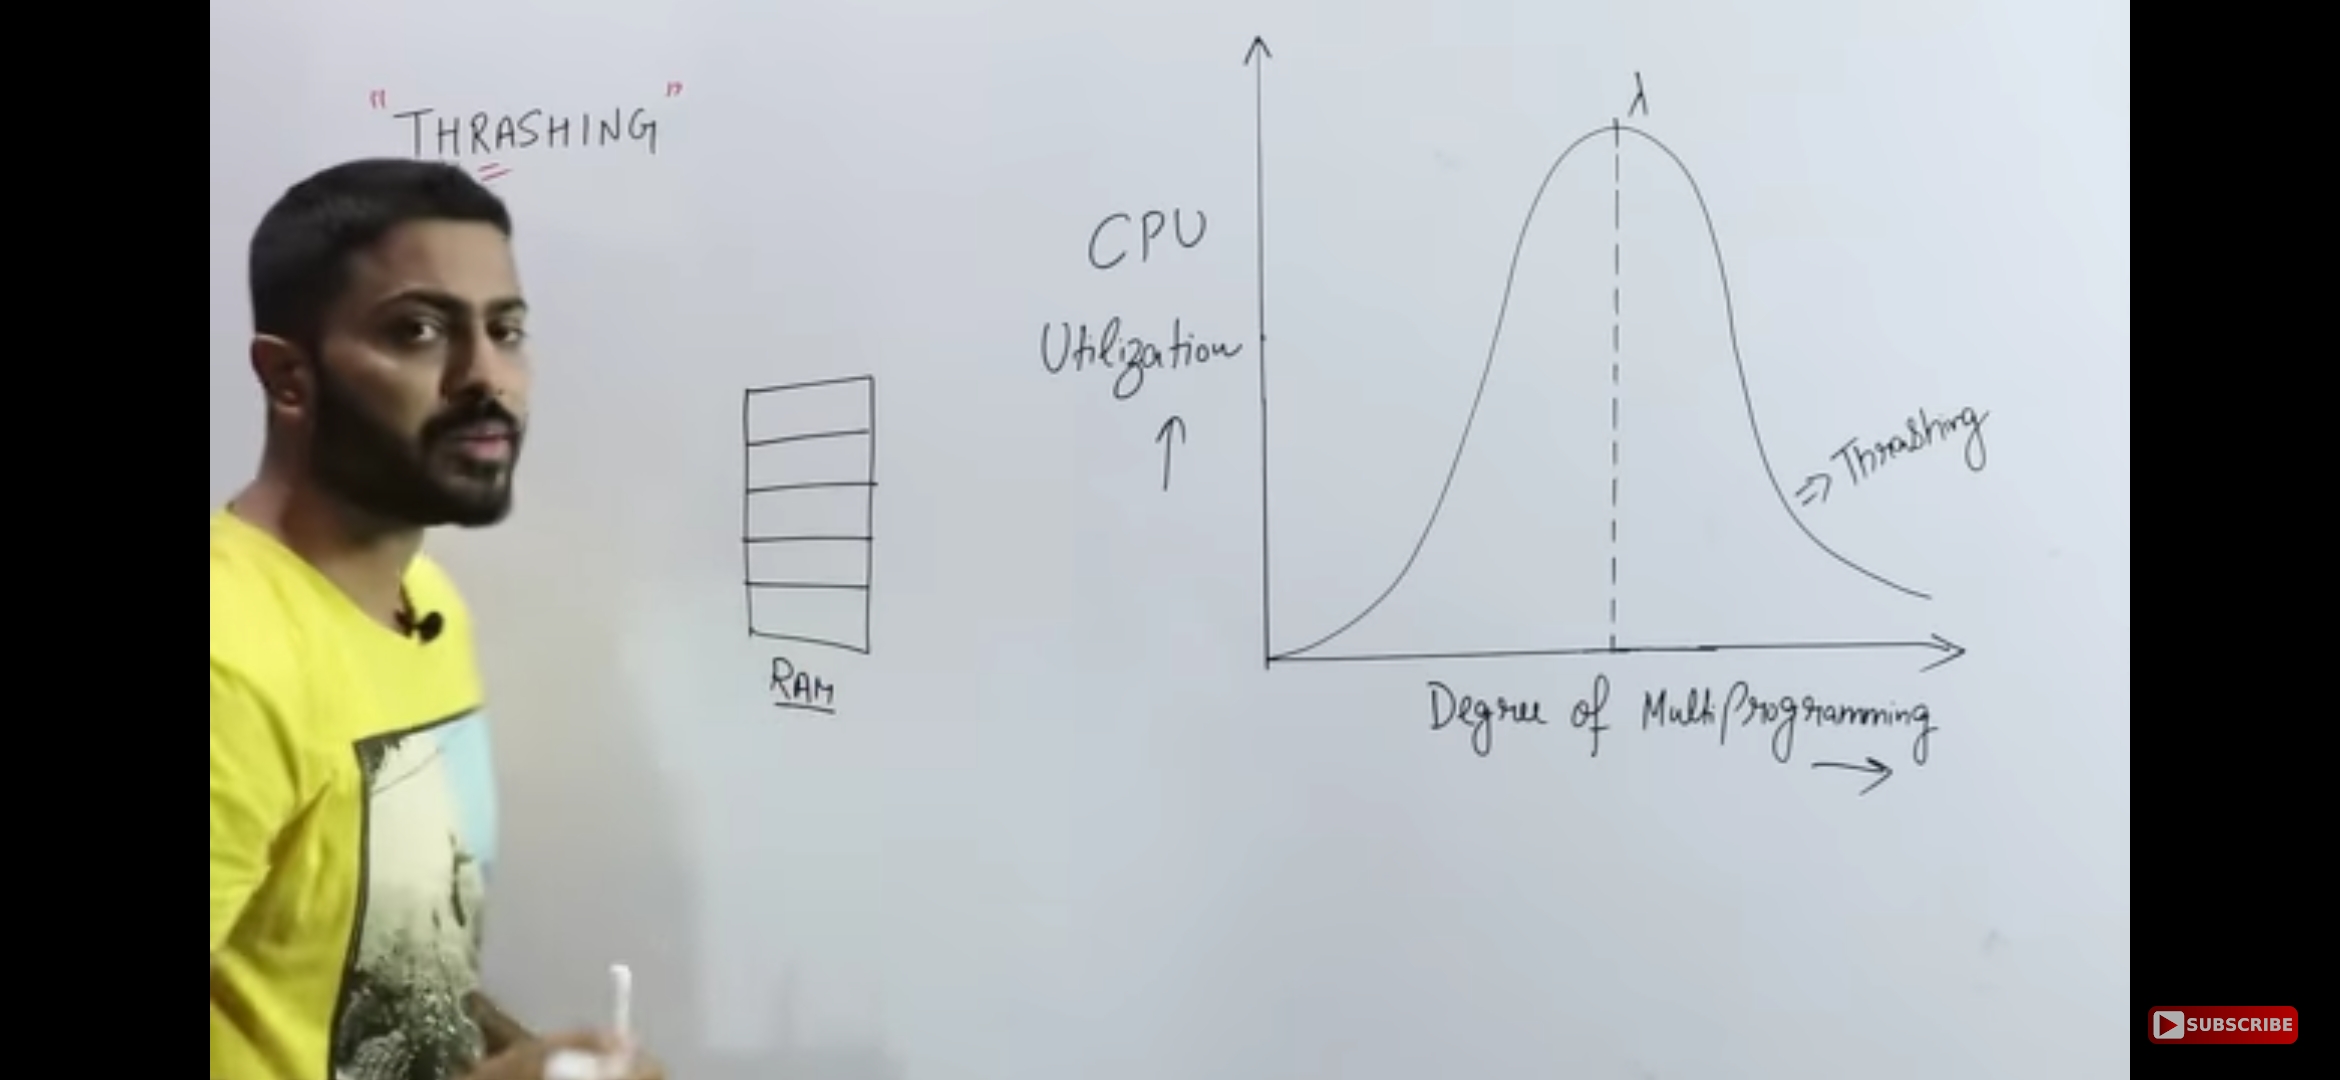 "THRASHING"
λ
CPU
Utilization
↑
⇒ Thrashing
RAM
Degree of Multiprogramming
→
SUBSCRIBE